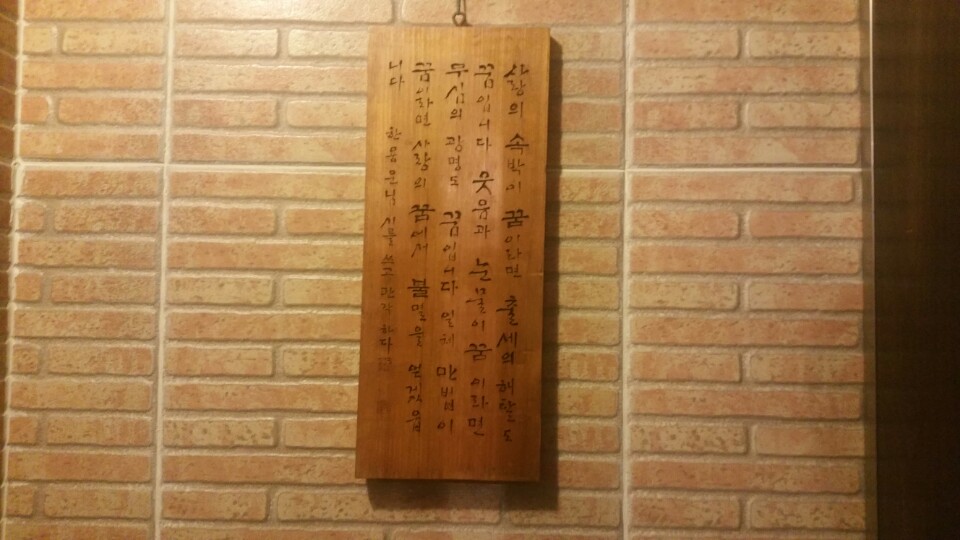 사랑의 속박이 꿈이라면 출세의 해탈도
꿈입니다 웃음과 눈물이 꿈이라면
무심의 광명도 꿈입니다 일체 만법이
꿈이라면 사랑의 꿈에서 불멸을 얻겠읍
니다 한용운님 시를 쓰고 판각하다